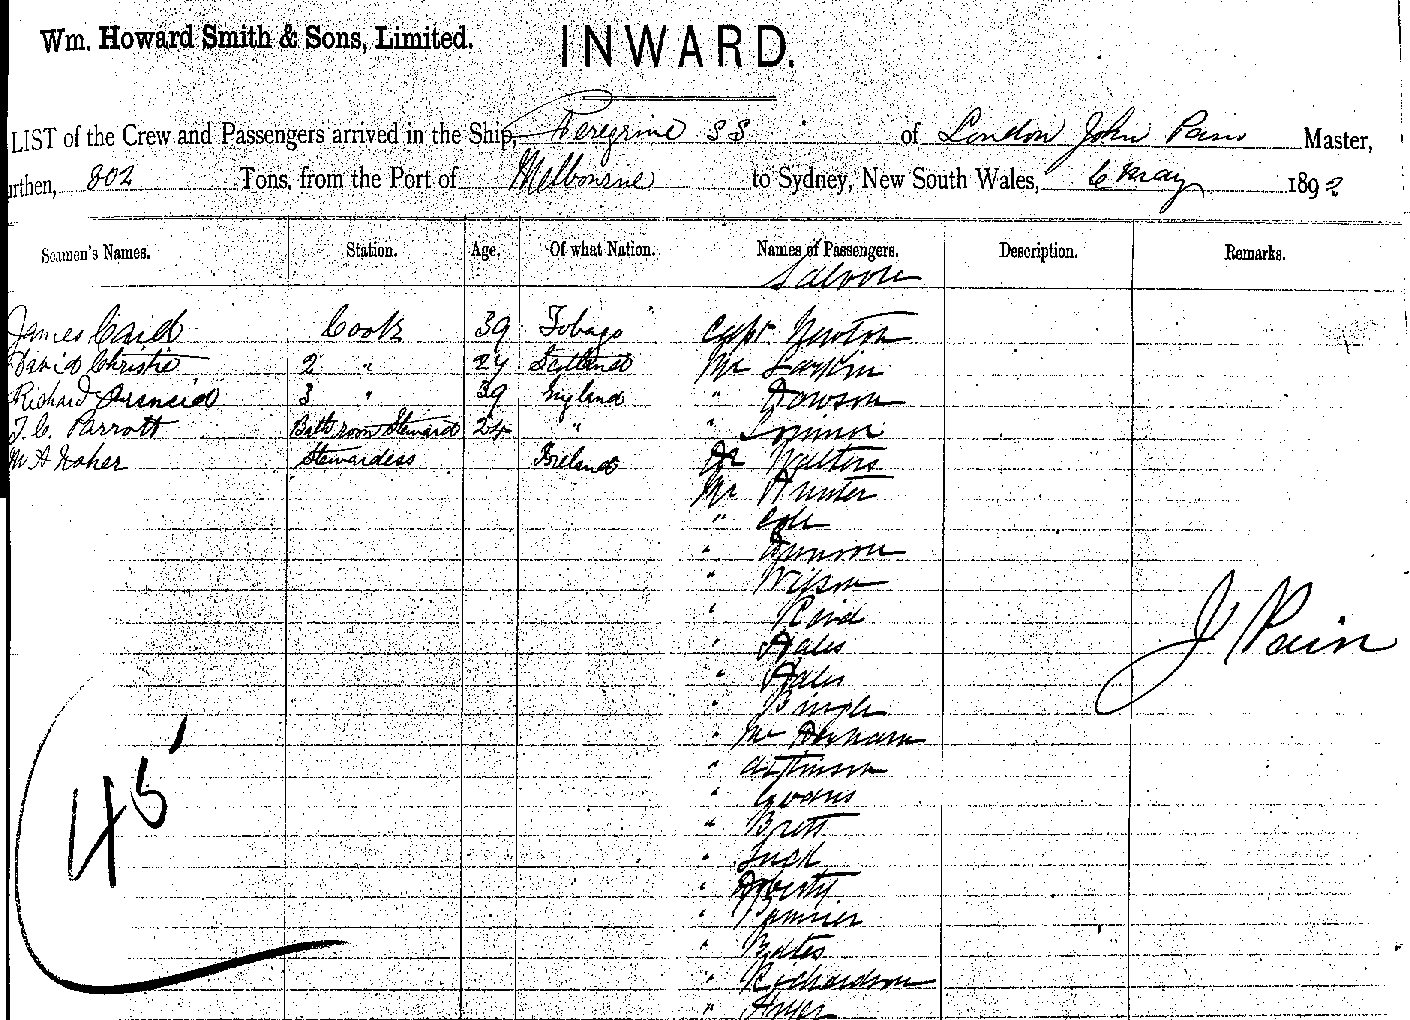 Wm. Howard Smith & Sons, Limited. INWARD.
LIST of the Crew and Passengers arrived in the Ship, Peregrine SS of London John Pain Master,
urthen, 802 Tons, from the Port of Melbourne to Sydney, New South Wales, 6 May 1892
Seamen's Names. Station. Age. Of what Nation. Names of Passengers. Description. Remarks.
Saloon
James Caid Cook 39 Tobago Capt Newton
David Christie 2 " 24 Scotland Mr Larkin
Richard 3 " 39 England " Dawson
T. C. Parrott Bath room Steward 24 " "
M A Steward­ess Ireland Dr Walters
Mr Hunter
" Cole
"
" Wilson
" Reid
" Hales
" Hales
" Bingle
" Mc
" Atkinson
" Evans
" Brett
"
" Doherty
"
" Bates
" Richardson
"
J Pain
45